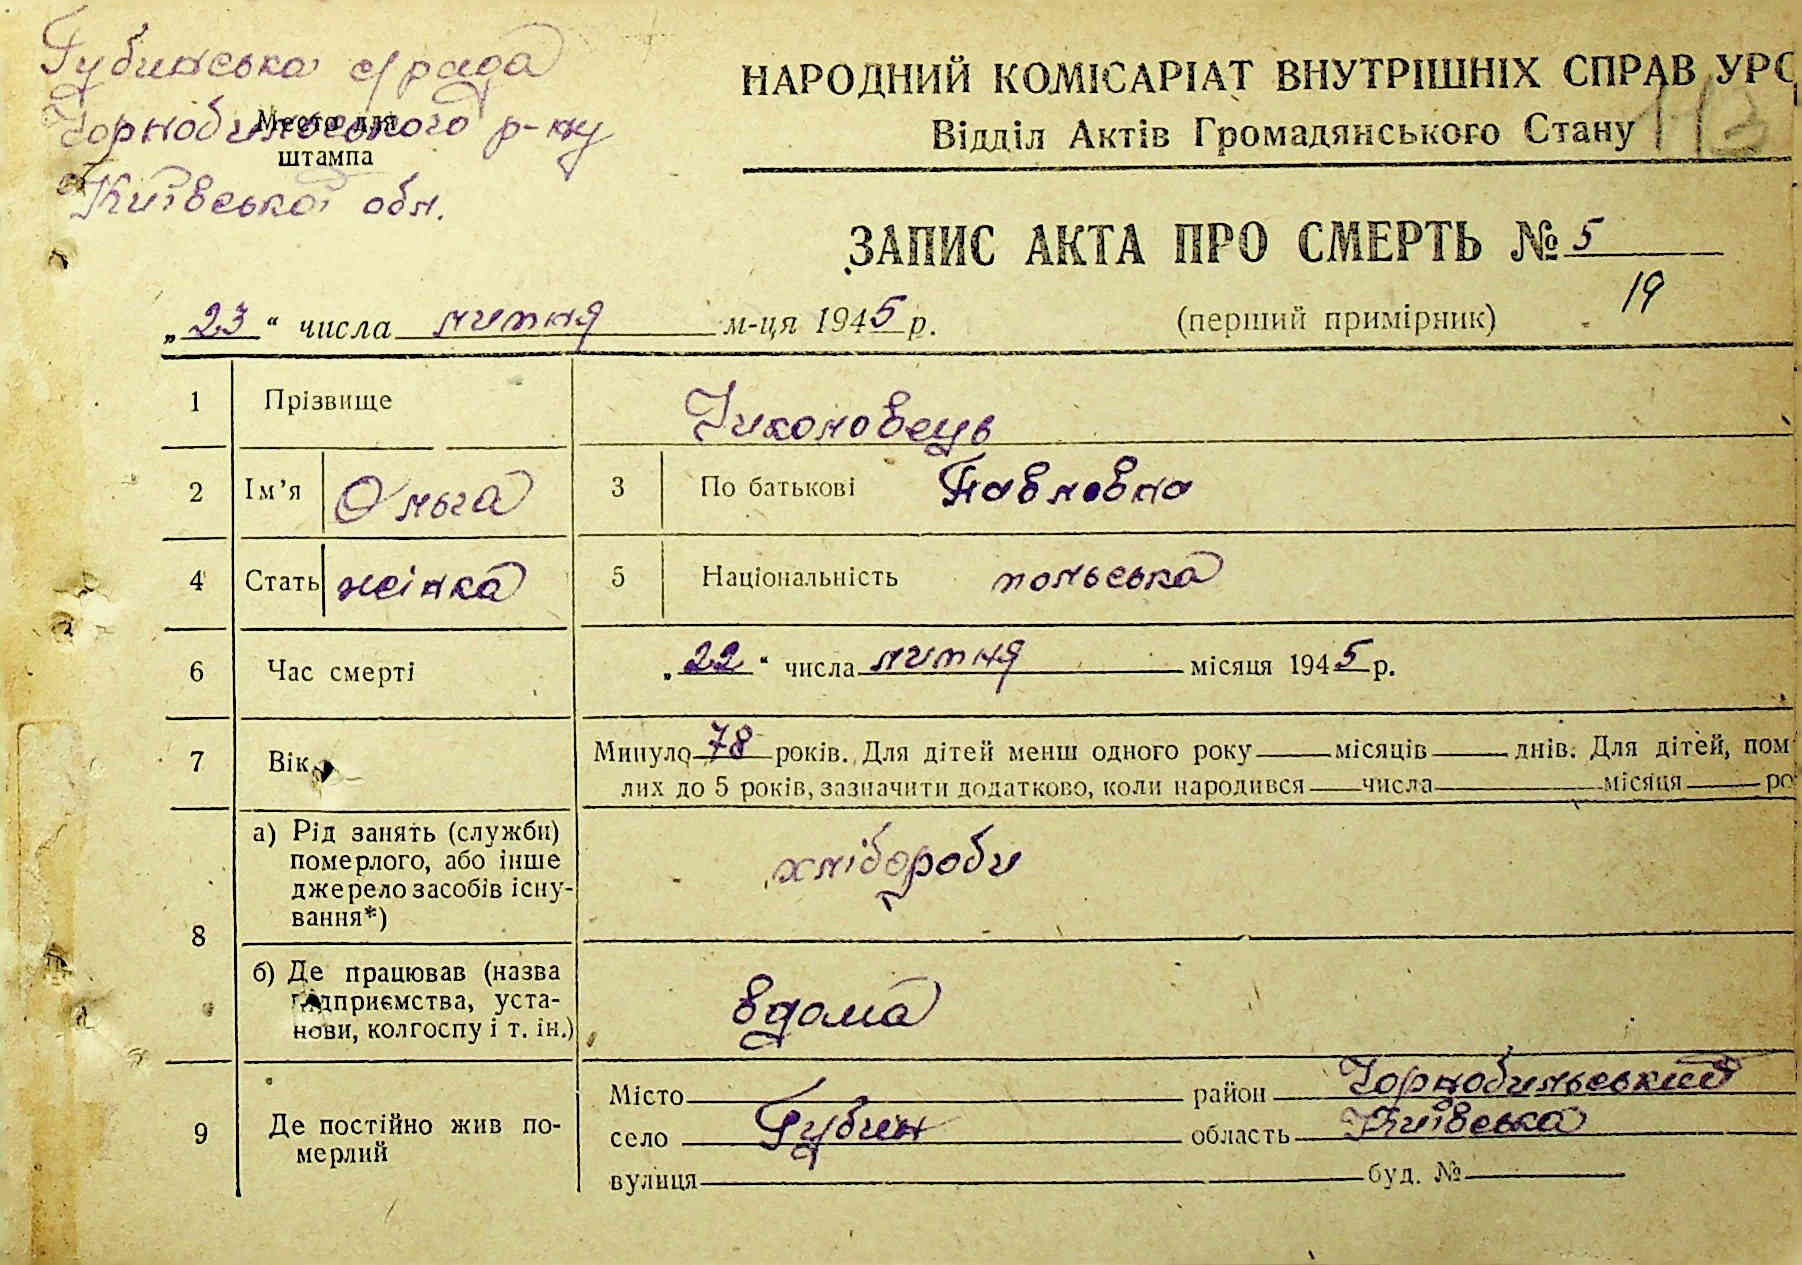 Губинська с/рада
Чорнобильського р-ну
Київської обл.
Место для
штампа
НАРОДНИЙ КОМІСАРІАТ ВНУТРІШНІХ СПРАВ УРС
Відділ Актів Громадянського Стану
113
ЗАПИС АКТА ПРО СМЕРТЬ № 5
19
„23“ числа липня м-ця 1945 р. (перший примірник)
1 Прізвище Тихоновець
2 Ім’я Ольга 3 По батькові Павловна
4 Стать жінка 5 Національність польська
6 Час смерті „22“ числа липня місяця 1945 р.
7 Вік Минуло 78 років. Для дітей менш одного року місяців днів. Для дітей, пом
лих до 5 років, зазначити додатково, коли народився числа місяця ро
8 а) Рід занять (служби)
померлого, або інше
джерело засобів існу-
вання*)
хлібороби
б) Де працював (назва
підприємства, уста-
нови, колгоспу і т. ін.)
вдома
9 Де постійно жив по-
мерлий
Місто район Чорнобильський
село Губин область Київська
вулиця буд. №